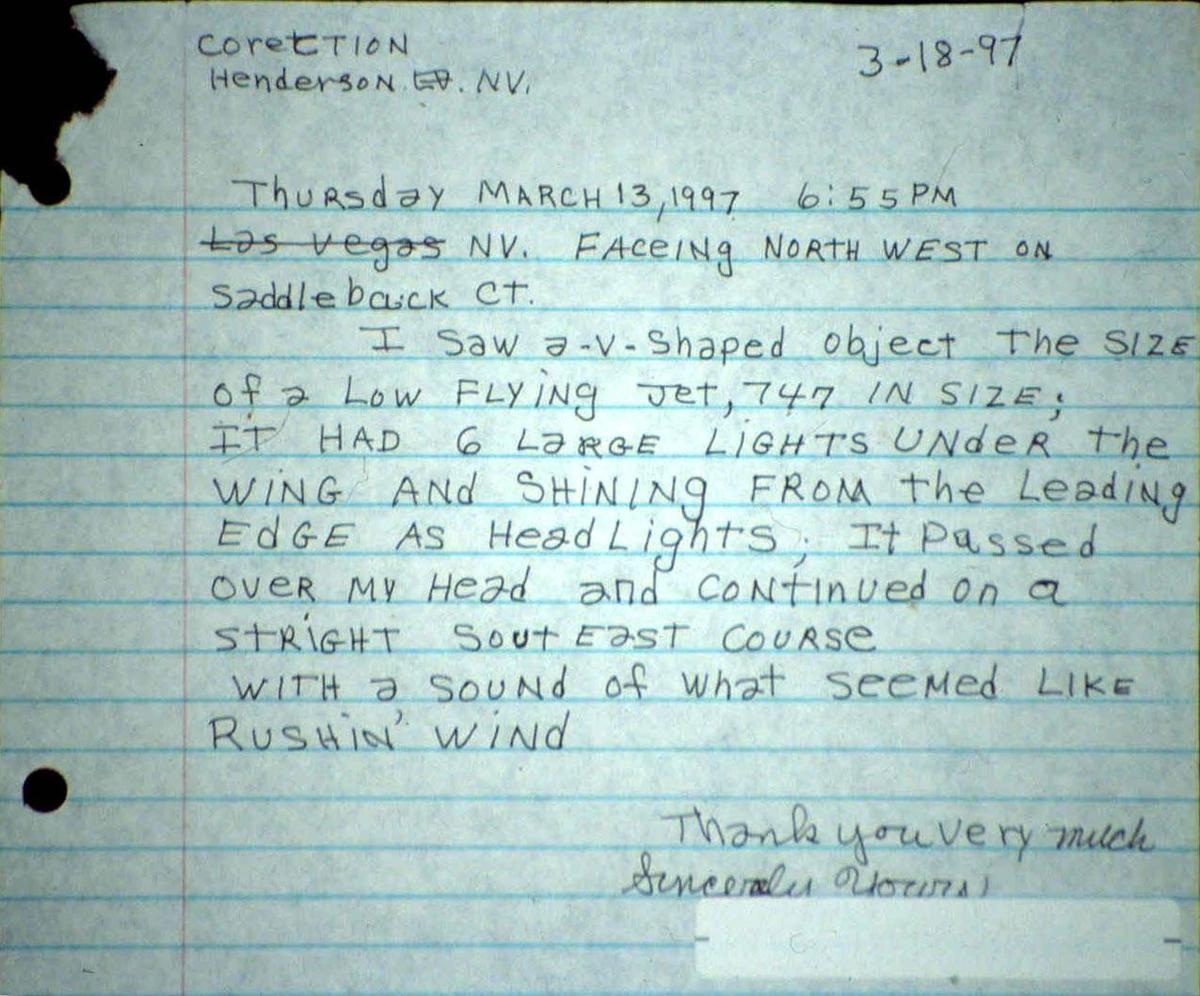 CoretTION
HendersoN. NV.
3-18-97
Thursday MARCH 13, 1997 6:55 PM
Las Vegas NV. FAceING NORTH WEST ON
Saddleback CT.
I Saw a-V-Shaped object The SIZE
of a Low FLYING Jet, 747 IN SIZE;
IT HAD 6 LARGE LIGHTS UNdeR the
WING ANd SHINING FROM the Leading
EdGE AS HeadLights; It Passed
OVER MY Head and CONtinued on a
STRIGHT Sout East Course
WITH a SOUNd of what seemed LIKE
RUSHIN' WINd
Thank you very much
Sincerely Yours,